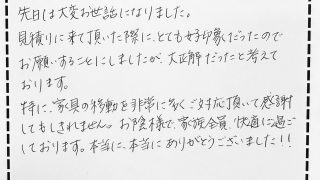 先日は大変お世話になりました。
見積りに来て頂いた際に、とても好印象だったので
お願いすることにしましたが、大正解だったと考えて
おります。
特に、家具の移動を非常に多くご対応頂いて感謝
してもしきれません。お陰様で、家族全員、快適に過ご
しております。本当に、本当にありがとうございました!!